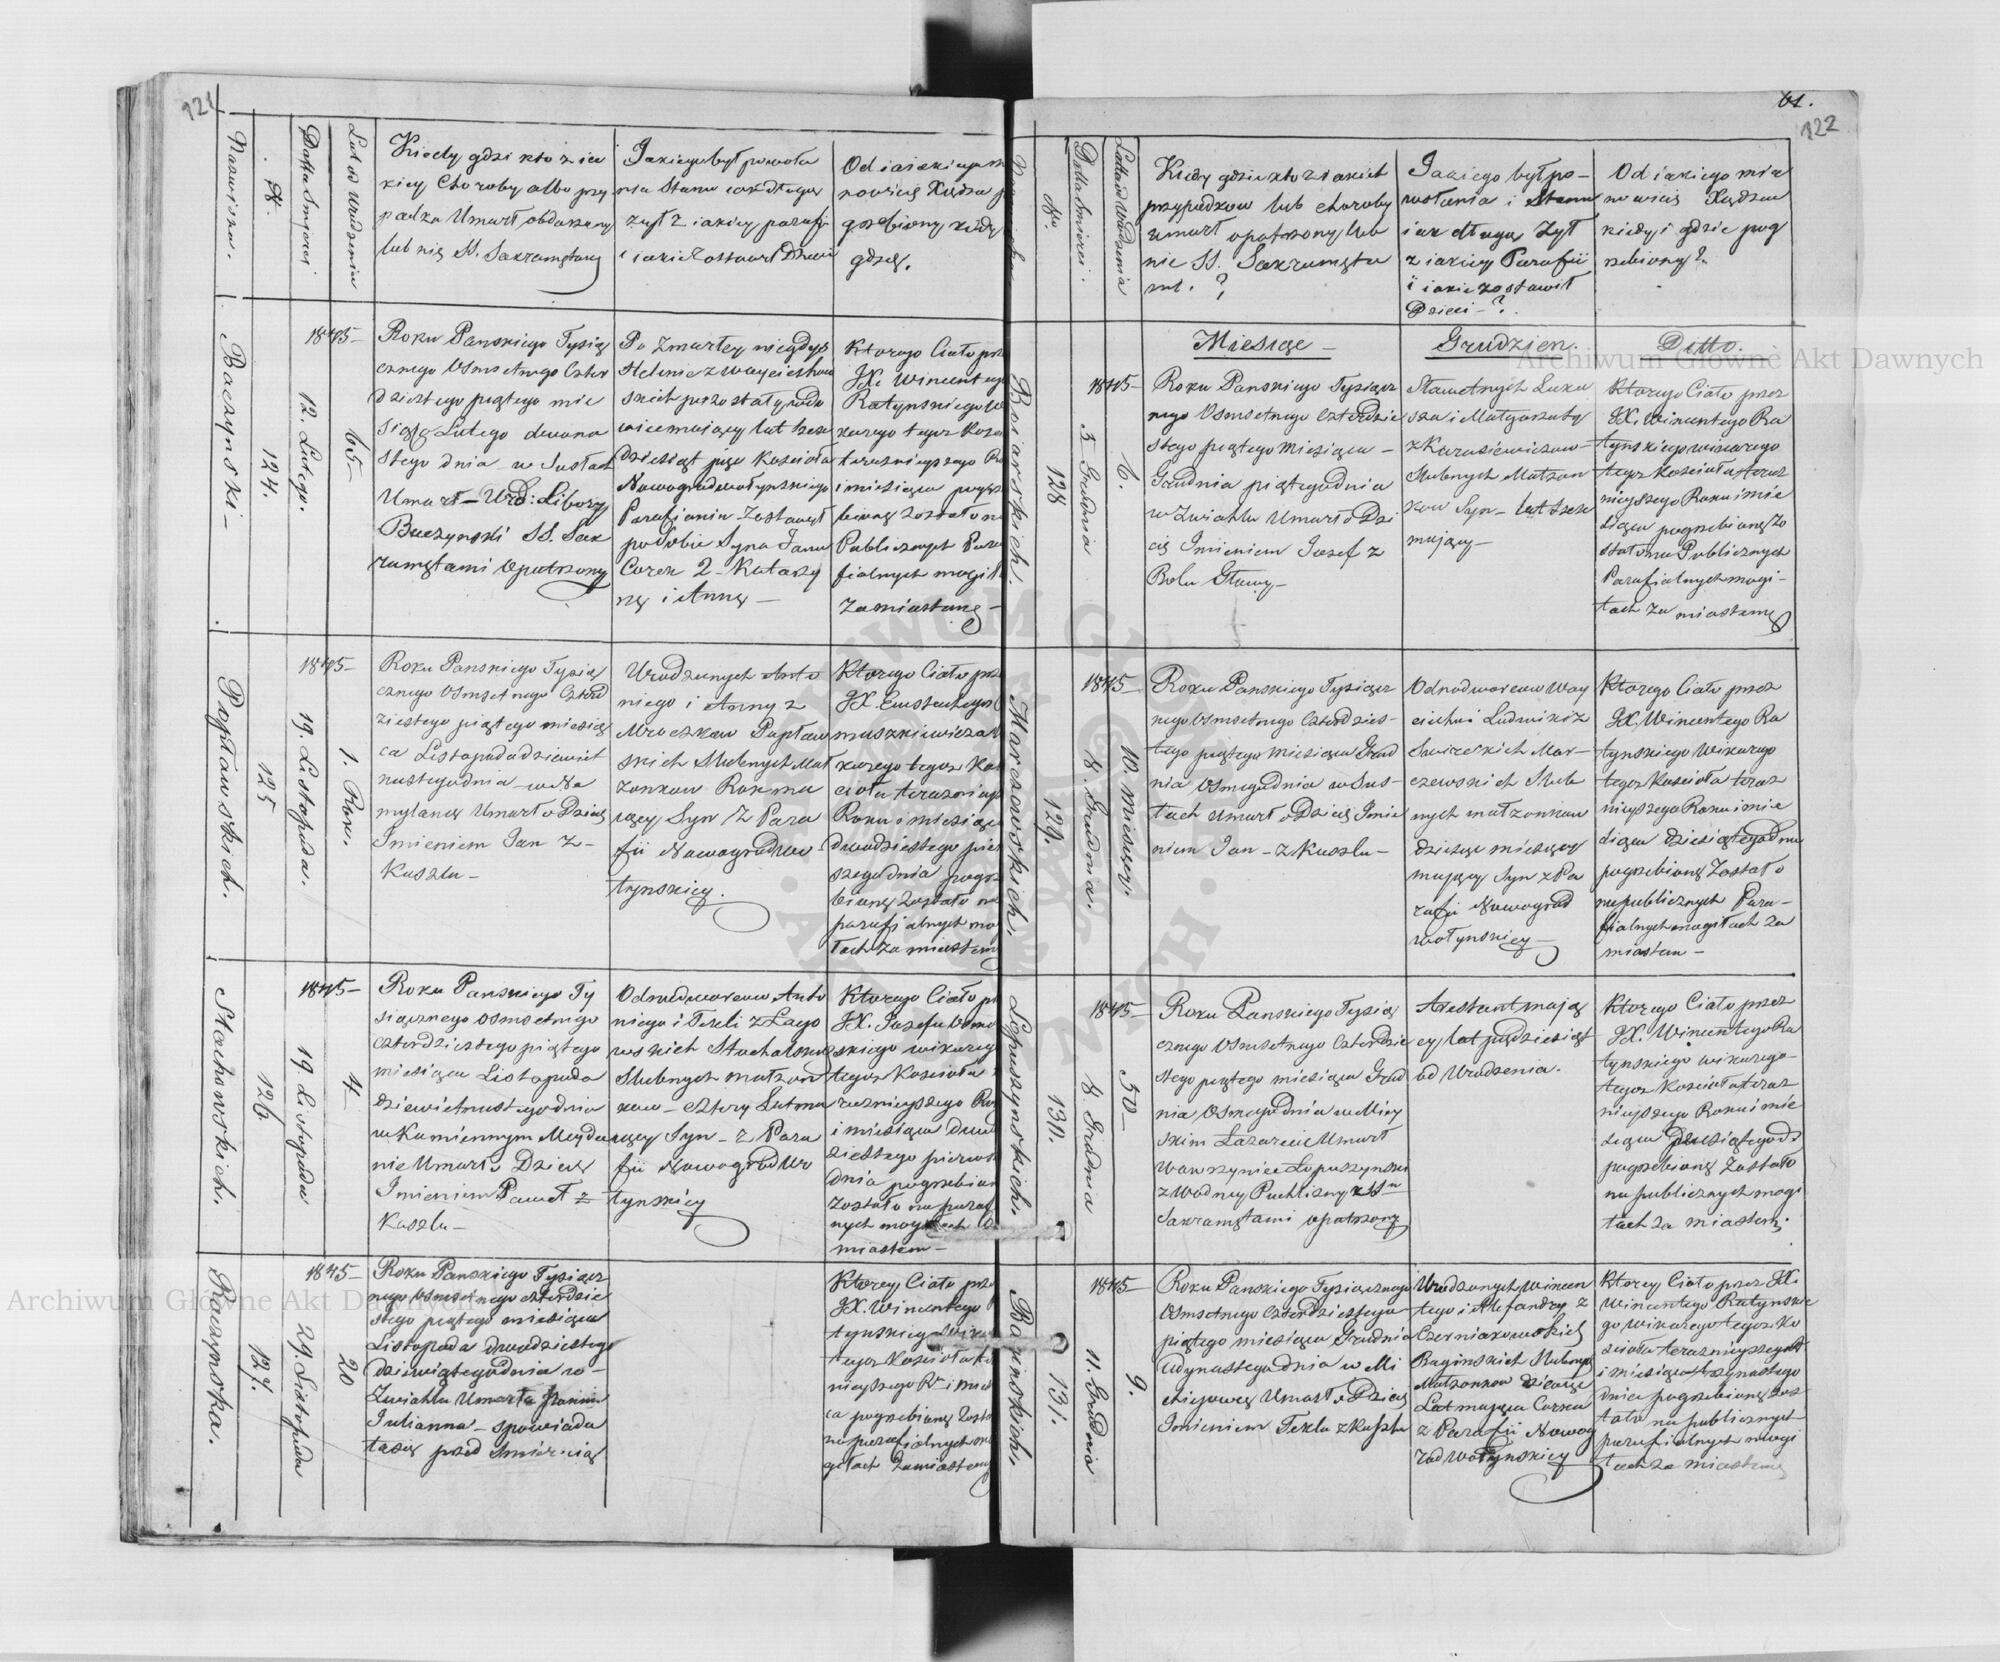 121
Nazwisko.
№.
Datta Smierci
Lat od Urodzenia
Kiedy gdzi kto z ia
kiey Choroby albo przy
padku Umarł obdarzony
lub nie SS. Sakramętamy
Jakiego był powoła
nia Stanu iak długo
żył z iakiey parafij
i iakie zostawił Dzieci
Od iakiego
nowicie Xiędza
grzebiony kiedy
gdzie.
Baczynski –
124.
1845–
12. Lutego.
65–
Roku Panskiego Tysią
cznego Osmsetnego Czter
dziestego piątego mie
siąca Lutego dwuna
stego dnia w Susłach
Umarł – Urd: Libory
Baczynski SS. Sak
ramętami Opatrzony
Po Zmarłey niegdys
Helenie z Woyciechow
skich pozostały wdo
wiec maiący lat sześć
dziesiąt pięć Kościoła
Nowogradwołynskiego
Parafianin Zostawił
po Sobie Syna Jana
Corek 2 – Katarzy
nę i Annę –
Ktorego Ciało prz
JX. Wincentego
Ratynskiego W
karego tegoż Kosc
teraznieyszego Ro
i miesiąca pogrze
bione Zostało na
Publicznych Para
fialnych mogiła
Za miastem –
Popławskich.
125
1845–
19. Listopada.
1. Rok.
Roku Panskiego Tysią
cznego Osmsetnego Czterd
ziestego piątego miesią
ca Listopada dziewiet
nastego dnia w Na
mylance Umarło Dziecię
Imieniem Jan z –
Kaszlu –
Urodzonych Anto
niego i Anny z
Mroczkow Popław
skich Slubnych Mał
żonkow Rok ma
iący Syn Z Para
fii Nowogradwo
łynskiey.
Ktorego Ciało prz
JX. Eustachego
maszkiewicza W
karego tegoż Koś
cioła teraznieysz
Roku i miesiąca
dwudziestego pier
szego dnia pogrz
bione Zostało na
parafialnych mo
łach Za miastem
Stachowskich.
126.
1845–
19 Listopada
4–
Roku Panskiego Ty
siącznego Osmsetnego
Czterdziestego piątego
miesiąca Listopada
dziewietnastego dnia
w Kamiennym Maydan
nie Umarło Dziecię
Imieniem Paweł z
Kaszlu –
Odnodworcow Anto
niego i Tekli z Łago
wskich Stachowsk
Slubnych małżon
kow – cztery Lat ma
iący Syn – z Para
fii Nowogradwo
łynskiey
Ktorego Ciało pr
JX. Jozefa Osmo
skiego wikareg
tegoż Kościoła
raznieyszego Ro
i miesiąca dwud
ziestego pierwsz
dnia pogrzebion
Zostało na paraf
nych mogiłach Za
miastem –
Raczynska.
127.
1845–
29. Listopada
20
Roku Panskiego Tysiącz
nego Osmsetnego czterdzie
stego piątego miesiąca
Listopada dwudziestego
dziewiątego dnia w –
Zwiahlu Umarła Panna
Julianna – spowiada
ła się przed Smiercią
Ktorey Ciało prz
JX. Wincentego
tynskiego Wika
tegoż Kościoła te
nieyszego Rku i mies
ca pogrzebione Zosta
na parafialnych mo
giłach Za miastem
61.
122
№.
Datta Smierci.
Latta od Urodzenia
Kiedy gdzie kto z iakich
przypadkow lub choroby
Umarł opatrzony lub
nie SS. Sakramęta
mi. ?
Jakiego był po–
wołania i Stanu
i iak długo Żył
z iakiey Parafii
i iakie zostawił
Dzieci – ?.
Od iakiego mia
nowicie Xiędza
kiedy i gdzie pog
rzebiony?
Miesiąc – Grudzien. Ditto.
Boiarskich.
128
1845–
5 Grudnia
6.
Roku Panskiego Tysiącz
nego Osmsetnego czterdzie
stego piątego Miesiąca –
Grudnia piątego dnia
w Zwiahlu Umarło Dzi
cię Imieniem Jozef z
Bolu Głowy –
Sławetnych Łuka
sza i Małgorzaty
z Karasiewiczow–
Slubnych Małżon
kow Syn – lat sześć
maiący –
Ktorego Ciało przez
JX. Wincentego Ra
tynskiego wikarego
tegoż Kościoła teraz
nieyszego Roku i mie
siąca pogrzebione Zo
stało na Publicznych
Parafialnych mogi–
łach Za miastem
Marczewskich.
129.
1845–
8. Grudnia.
10. miesięcy.
Roku Panskiego Tysiącz
nego Osmsetnego Czterdzies–
tego piątego Miesiąca Grud
nia Osmego dnia w Sus–
łach Umarło Dziecię Imie
niem Jan – z Kaszlu –
Odnodworcow Woy
ciecha i Ludwiki z
Sawickich Mar–
czewskich Slub
nych małżonkow
dziesięć miesięcy
maiący Syn z Pa
rafii Nowograd
wołynskiey –
Ktorego Ciało przez
JX. Wincentego Ra
tynskiego Wikarego
tegoż Kościoła teraz
nieyszego Roku i mie
siąca dziesiątego dnia
pogrzebione Zostało
na publicznych Para–
fialnych mogiłach Za
miastem –
Łopuszynskich.
130.
1845–
8. Grudnia
50–
Roku Panskiego Tysią
cznego Osmsetnego Czterdzie
stego piątego miesiąca Grud
nia Osmego Dnia w Miey
skim Lazarecie Umarł
Wawrzyniec Łopuszynski
z Wodney Puchliny z SS.
Sakramętami opatrzony
Aresztant maią
cy lat pięćdziesiąt
od Urodzenia.
Ktorego Ciało przez
JX. Wincentego Ra
tynskiego wikarego–
tegoż Kościoła teraz
nieyszego Roku i mie
siąca dziesiątego d:
pogrzebione Zostało
na publicznych mogi
łach za miastem.
Baginskich.
131.
1845–
11. Grudnia
9.
Roku Panskiego Tysiącznego
Osmsetnego Czterdziestego
piątego miesiąca Grudnia
iedynastego dnia w Mi
chiejowce Umarło Dziecię
Imieniem Tekla z Kaszlu
Urodzonych Wincen
tego i Alexandry z
Czerniakowskich
Baginskich Slubnych
Małżonkow dziewięć
Lat maiąca Corka
z Parafii Nowog
rad wołynskiey
Ktorey Ciało przez JX.
Wincentego Ratynskie
go wikarego tegoż Ko
ścioła teraznieyszego R
i miesiąca trzynastego
dnia pogrzebione Zos
tało na publicznych
parafialnych mogi
łach za miastem
Archiwum Główne Akt Dawnych
Archiwum Główne Akt Dawnych